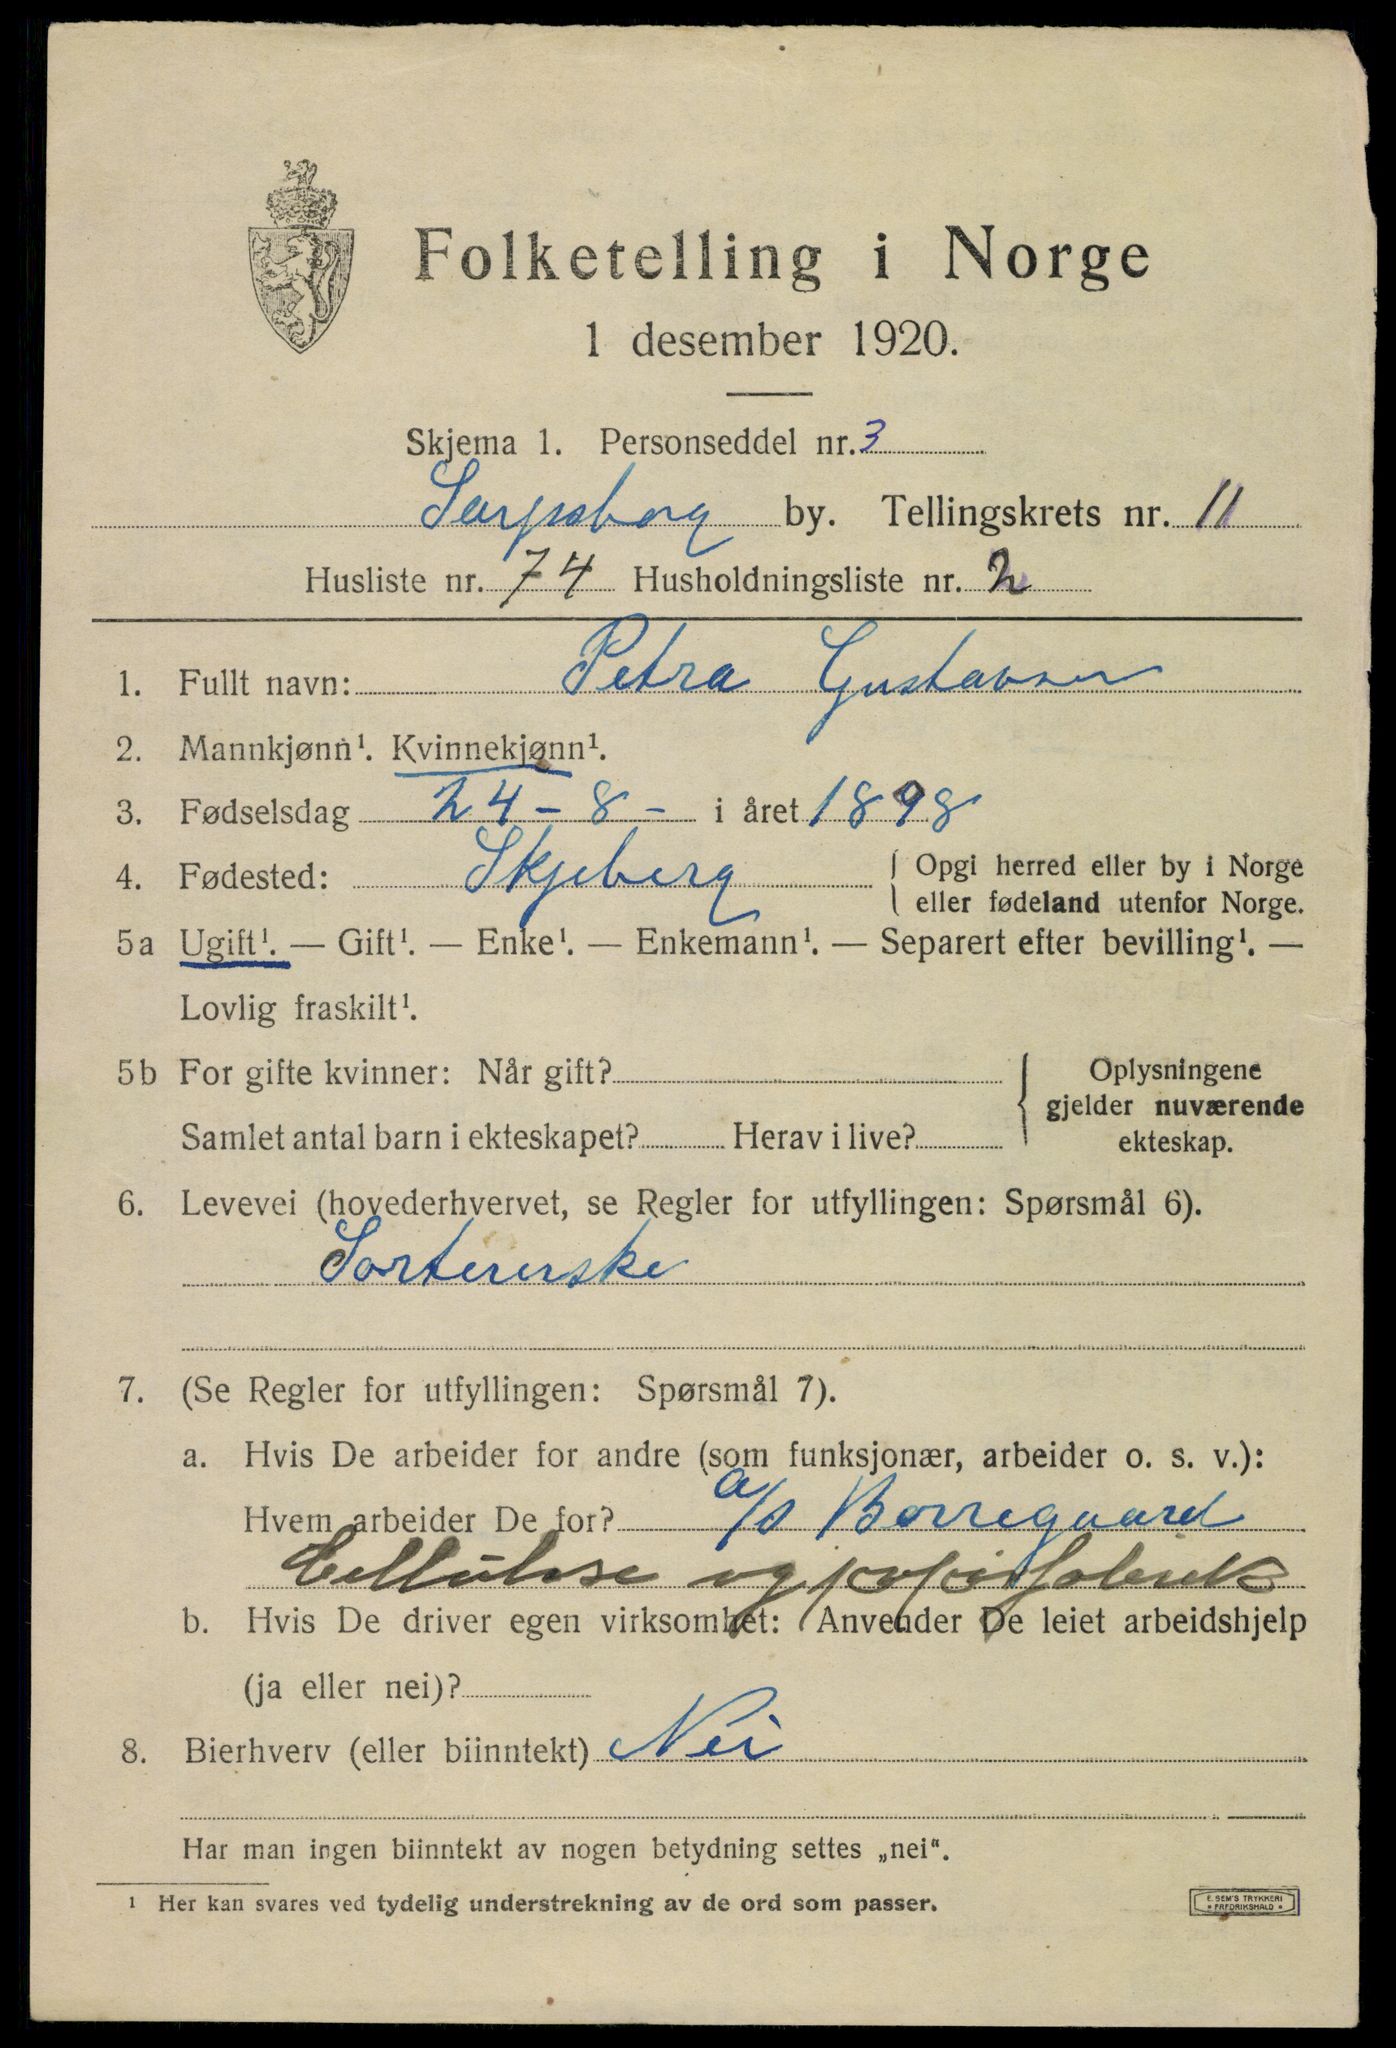 Folketelling i Norge
1 desember 1920.
Skjema 1. Personseddel nr. 3
Sarpsborg by. Tellingskrets nr. 11
Husliste nr. 74 Husholdningsliste nr. 2
1. Fullt navn: Petra Gustavsen
2. Mannkjønn¹. Kvinnekjønn¹.
3. Fødselsdag 24-8- i året 1898
4. Fødested: Skjeberg { Opgi herred eller by i Norge
eller fødeland utenfor Norge.
5a Ugift¹. — Gift¹. — Enke¹. — Enkemann¹. — Separert efter bevilling¹. —
Lovlig fraskilt¹.
5b For gifte kvinner: Når gift?
Samlet antal barn i ekteskapet? Herav i live?
{ Oplysningene
gjelder nuværende
ekteskap.
6. Levevei (hovederhvervet, se Regler for utfyllingen: Spørsmål 6).
Sortererske
7. (Se Regler for utfyllingen: Spørsmål 7).
a. Hvis De arbeider for andre (som funksjonær, arbeider o. s. v.):
Hvem arbeider De for? a/s Borregaard
Cellulose og papirfabrik
b. Hvis De driver egen virksomhet: Anvender De leiet arbeidshjelp
(ja eller nei)?
8. Bierhverv (eller biinntekt) Nei
Har man ingen biinntekt av nogen betydning settes „nei“.
¹ Her kan svares ved tydelig understrekning av de ord som passer.
E. SEM'S TRYKKERI
• FREDRIKSHALD •